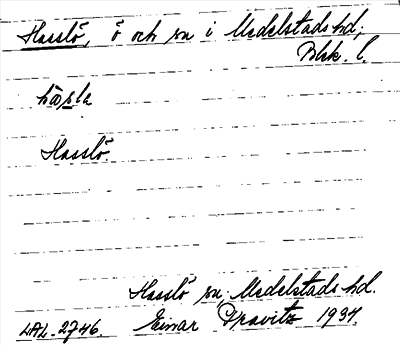 Hasslö, ö och sn i Medelstads hd;
Blek. l.
hasla
Hasslö.
Hasslö sn, Medelstads hd.
LAL. 2746. Einar Pravitz 1934.